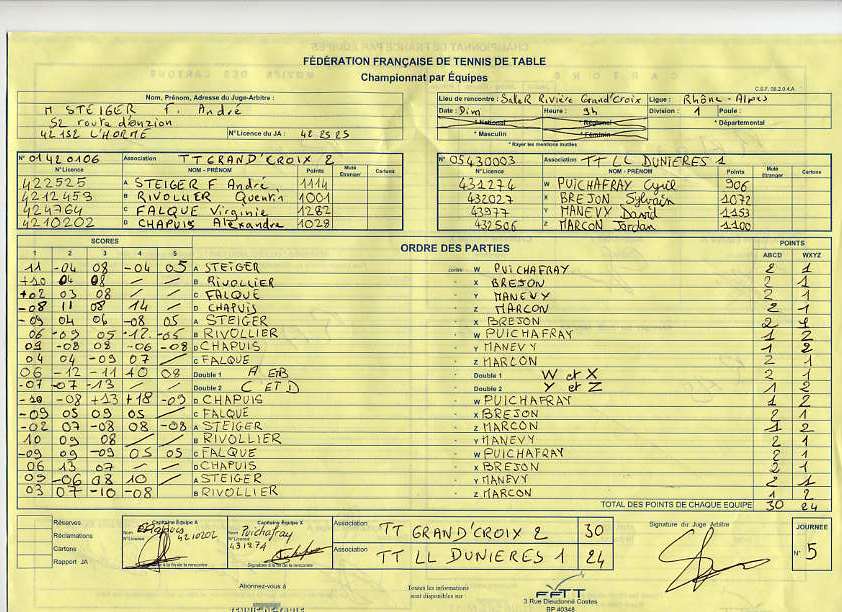 FÉDÉRATION FRANÇAISE DE TENNIS DE TABLE
Championnat par Équipes
C.S.F. 08.2.0.4.A
Nom, Prénom, Adresse du Juge-Arbitre :
M STEIGER F. André
52 route d'onzion
42152 L'HORME
N°Licence du JA : 42 25 25
Lieu de rencontre : Salle R Rivière Grand'Croix Ligue : Rhône-Alpes
Date : Dim Heure : 9h Division : 1 Poule :
* National * Régional * Départemental
* Masculin * Féminin
* Rayer les mentions inutiles
N° 01420106 Association TT GRAND'CROIX 2
N°Licence NOM - PRÉNOM Points Muté Etranger Cartons
422525 A STEIGER F André 1114
4212459 B RIVOLLIER Quentin 1001
424764 C FALQUE Virginie 1282
4210202 D CHAPUIS Alexandre 1028
N° 05430003 Association TT LL DUNIERES 1
N°Licence NOM - PRÉNOM Points Muté Etranger Cartons
431274 W PUICHAFRAY Cyril 906
432027 X BREJON Sylvain 1072
43977 Y MANEVY David 1153
432506 Z MARCON Jordan 1100
SCORES ORDRE DES PARTIES POINTS
1 2 3 4 5 ABCD WXYZ
11 -04 08 -04 05 A STEIGER contre W PUICHAFRAY 2 1
+10 04 08 / / B RIVOLLIER X BREJON 2 1
+02 03 08 / / C FALQUE Y MANEVY 2 1
-08 11 08 14 / D CHAPUIS Z MARCON 2 1
-09 04 06 -08 05 A STEIGER X BREJON 2 1
06 -09 05 -12 -05 B RIVOLLIER W PUICHAFRAY 1 2
09 -08 08 -06 -08 D CHAPUIS Y MANEVY 1 2
04 04 -09 07 / C FALQUE Z MARCON 2 1
06 -12 -11 10 08 Double 1 A et B W et X 2 1
-07 -07 -13 / / Double 2 C ET D Y et Z 1 2
-10 -08 +13 +18 -09 D CHAPUIS W PUICHAFRAY 1 2
-09 05 09 05 / C FALQUE X BREJON 2 1
-02 07 -08 08 -08 A STEIGER Z MARCON 1 2
10 09 08 / / B RIVOLLIER Y MANEVY 2 1
-09 09 -09 05 05 C FALQUE W PUICHAFRAY 2 1
06 13 07 / / D CHAPUIS X BREJON 2 1
09 -06 08 10 / A STEIGER Y MANEVY 2 1
03 07 -10 -08 B RIVOLLIER Z MARCON 1 2
TOTAL DES POINTS DE CHAQUE EQUIPE 30 24
Réserves
Réclamations
Cartons
Rapport JA
Capitaine Équipe A
N°Licence 4210202
Capitaine Équipe X
Nom Puichafray
N°Licence 431274
Signature à la fin de la rencontre
Association TT GRAND'CROIX 2 30
Association TT LL DUNIERES 1 24
Signature du Juge Arbitre
JOURNEE
N° 5
Abonnez-vous à
Toutes les informations
sont disponibles sur
FFTT
3 Rue Dieudonné Costes
BP 40348